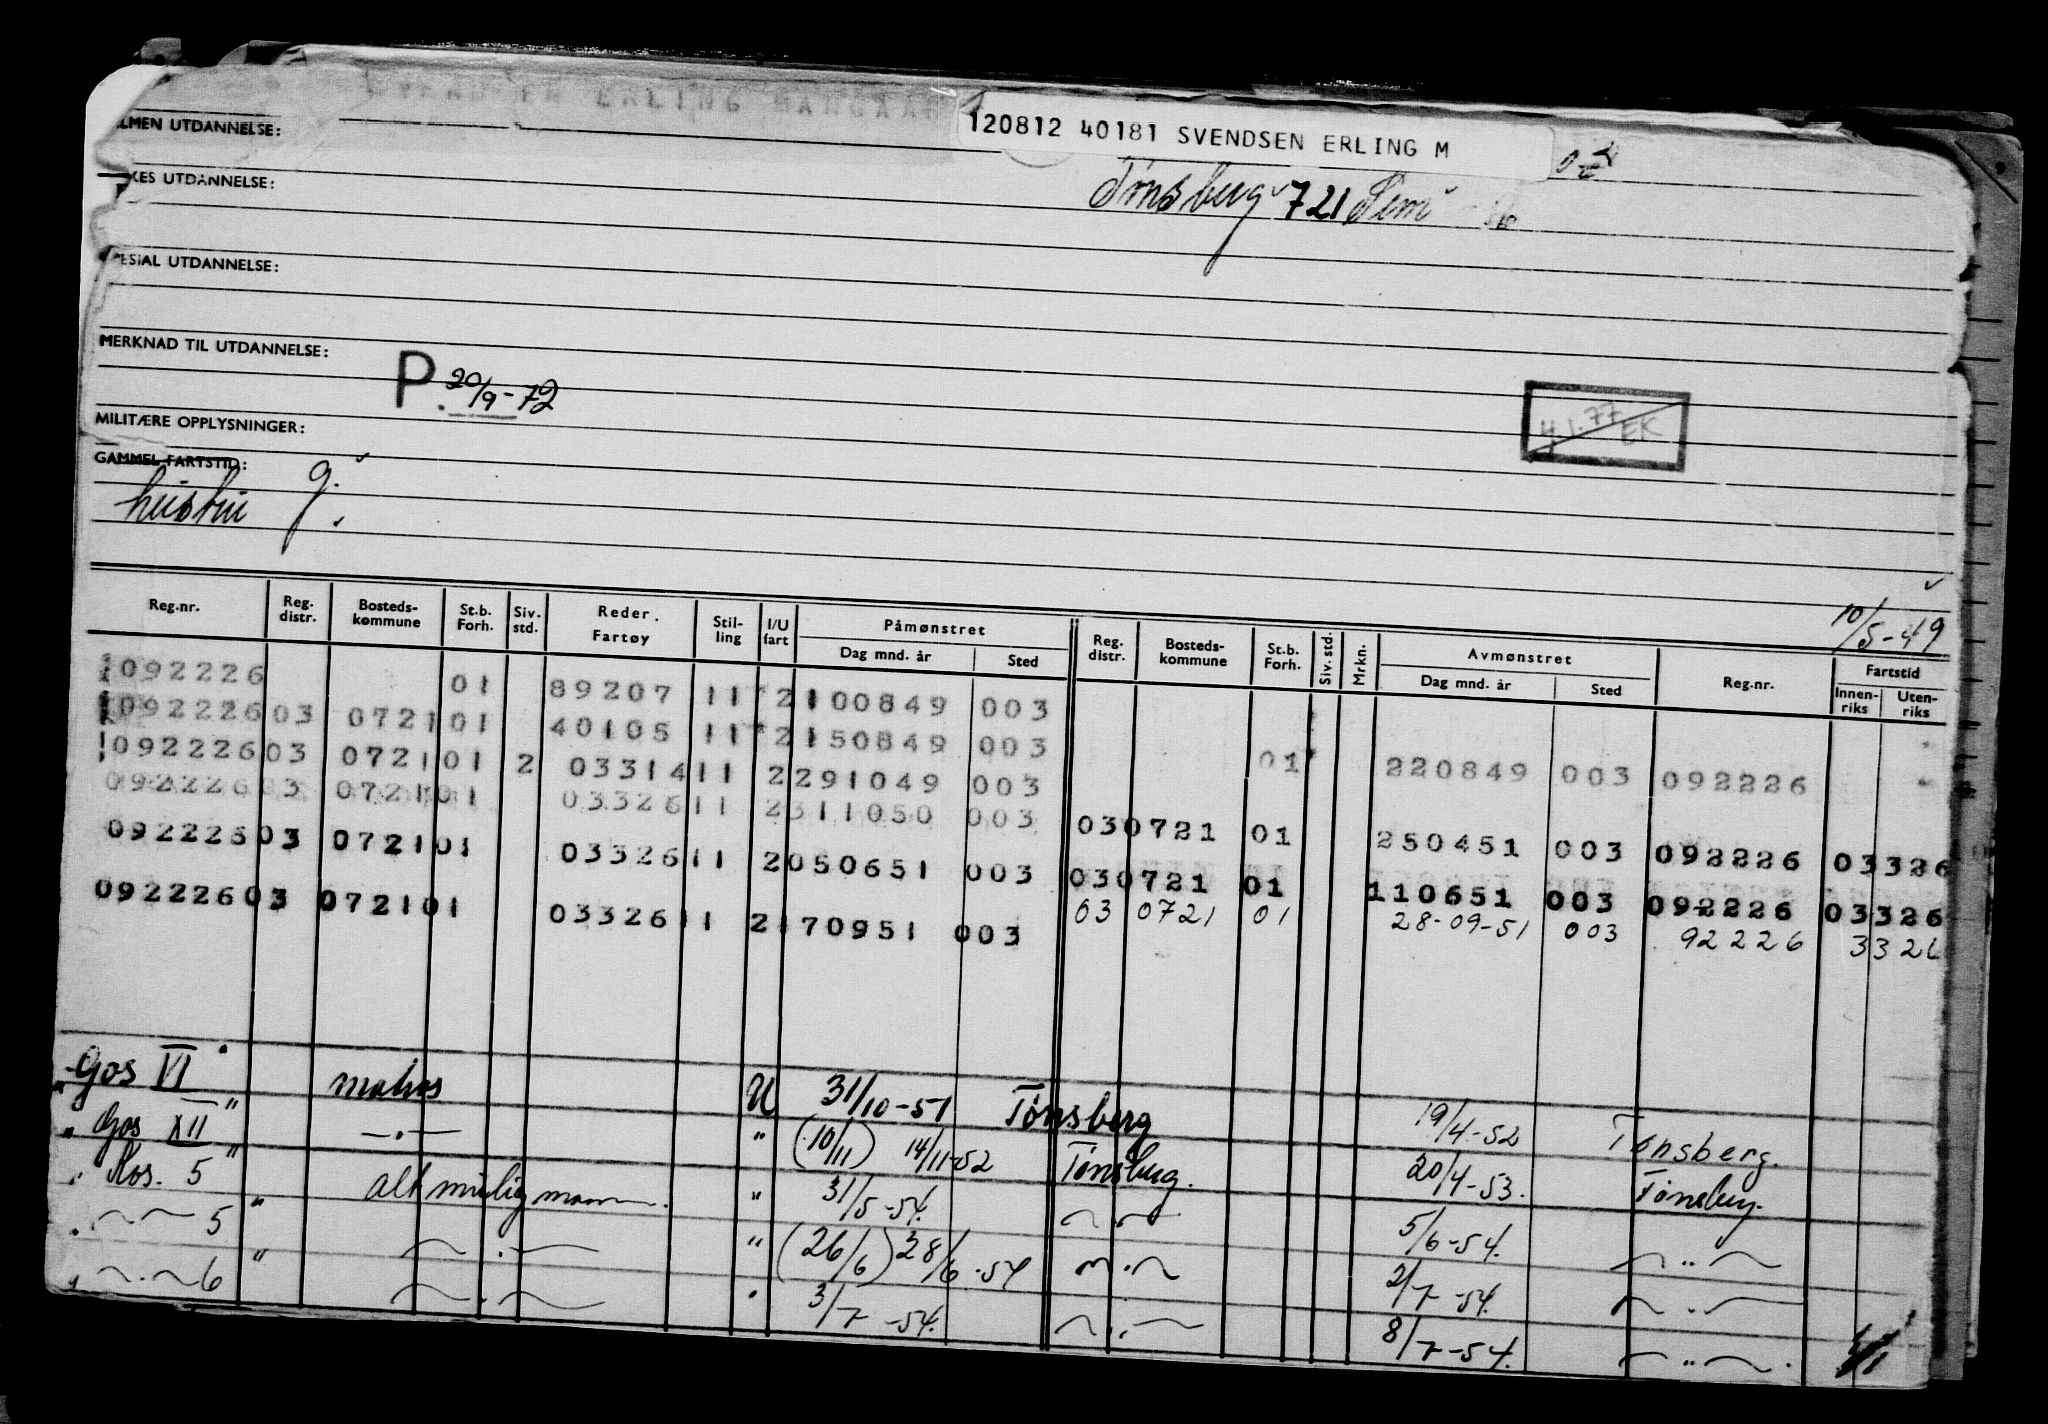 120812 40181 SVENDSEN ERLING M
LMEN UTDANNELSE:
Tønsberg 721 Sem
KES UTDANNELSE:
ESIAL UTDANNELSE:
MERKNAD TIL UTDANNELSE:
P. 20/9-72
4.1.77 EK
MILITÆRE OPPLYSNINGER:
GAMMEL FARTSTID:
hustru g.
10/5-49
Reg.nr. Reg. distr. Bosteds-kommune St.b. Forh. Siv. std. Reder. Fartøy Stil-ling I/U fart Påmønstret Dag mnd. år Sted Reg. distr. Bosteds-kommune St.b. Forh. Siv. std. Mrkn. Avmønstret Dag mnd. år Sted Reg.nr. Fartstid Innen-riks Uten-riks
092226 01 89207 11 2 100849 003
092226 03 0721 01 40105 11 2 150849 003 01 220849 003 092226
092226 03 0721 01 2 03314 11 2 291049 003
092226 03 0721 01 03326 11 2 311050 003 03 0721 01 250451 003 092226 03326
092226 03 0721 01 03326 11 2 050651 003 03 0721 01 110651 003 092226 03326
092226 03 0721 01 03326 11 2 170951 003 03 0721 01 28-09-51 003 92226 3326
"Gos VI" matros U 31/10-51 Tønsberg 19/4-52 Tønsberg.
"Gos XII" —.— " (10/11) 14/11-52 Tønsberg. 20/4-53. Tønsberg.
"Kos. 5" altmuligmann. " 31/5-54. 5/6-54.
5" " (26/6) 28/6-54 2/7-54.
6 3/7-54. 8/7-54.